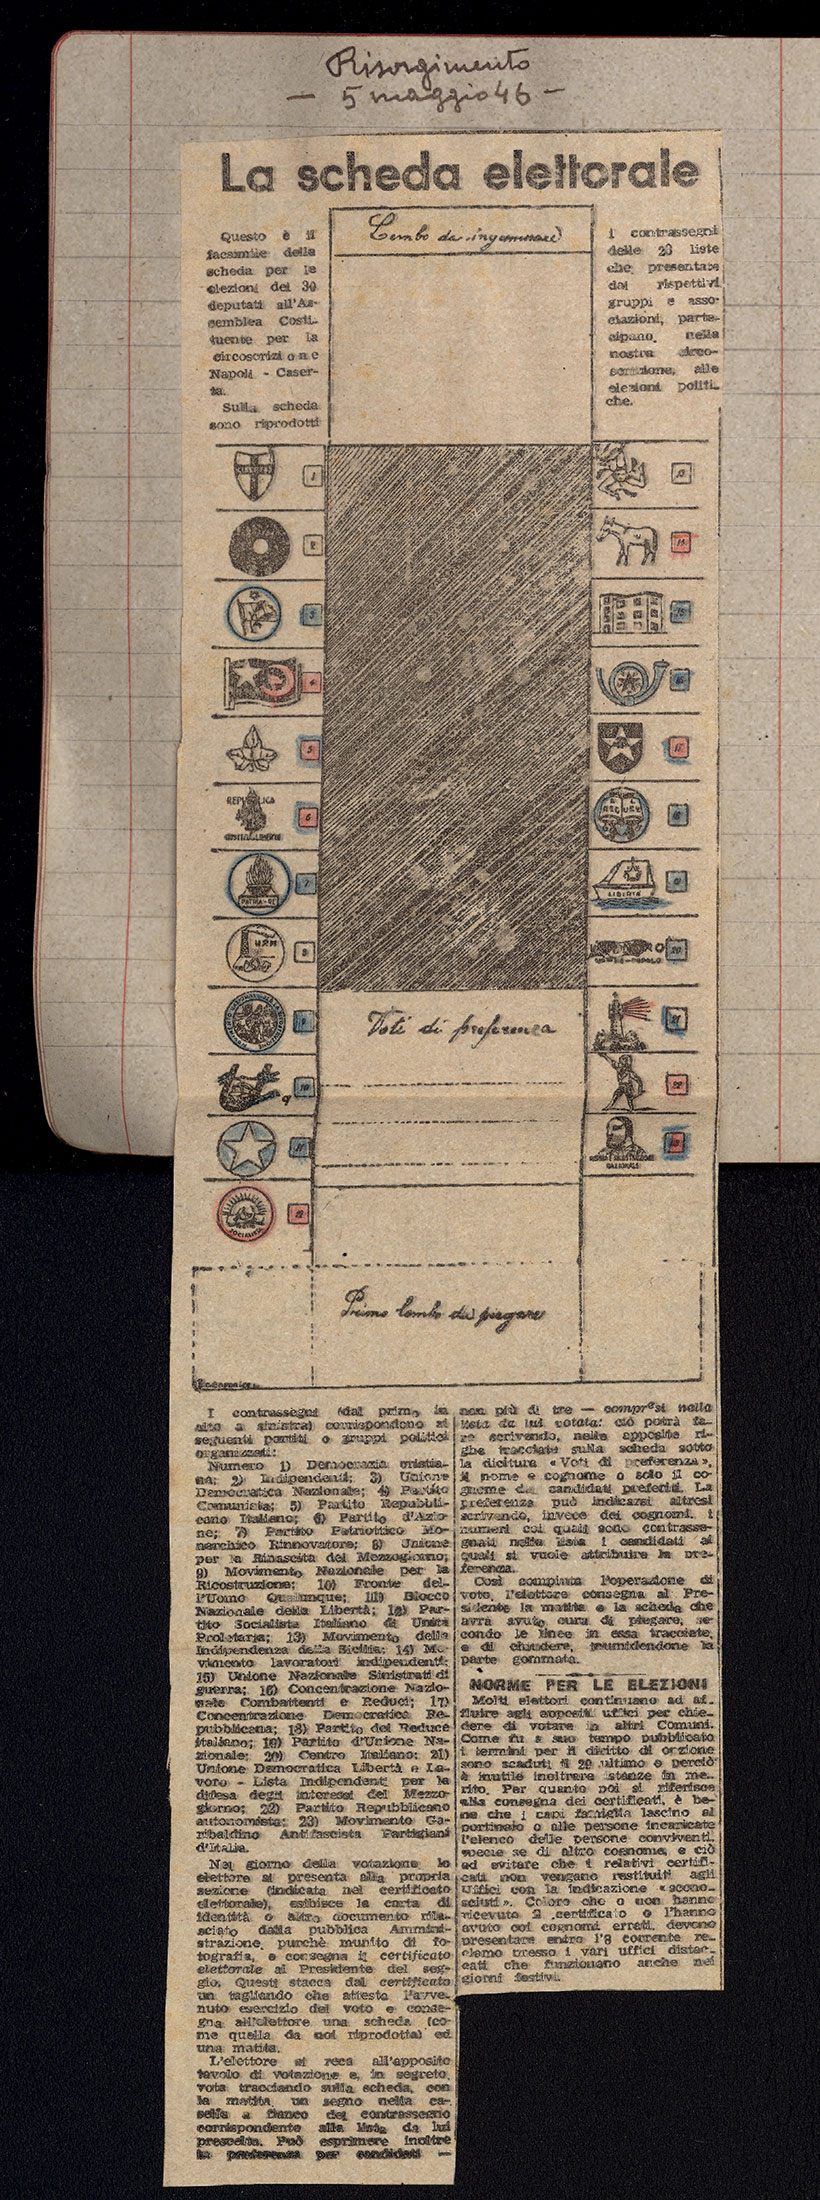 Risorgimento
— 5 maggio 46 —
La scheda elettorale
Questo è il
facsimile della
scheda per le
elezioni dei 30
deputati all'As-
semblea Costi-
tuente per la
circoscrizione
Napoli - Caser-
ta.
Sulla scheda
sono riprodotti
Lembo da ingommare
i contrassegni
delle 23 liste
che, presentate
dai rispettivi
gruppi e asso-
ciazioni, parte-
cipano, nella
nostra circo-
scrizione, alle
elezioni politi-
che.
1
2
3
4
5
REPUBBLICA
6
7
PATRIA-RE
8
U.R.M.
9
10
11
12
SOCIALISTA
13
14
15
16
17
18
19
LIBERTÀ
20
21
22
23
Voti di preferenza
Primo lembo da piegare
I contrassegni (dal primo in
alto a sinistra) corrispondono ai
seguenti partiti o gruppi politici
organizzati:
Numero 1) Democrazia cristia-
na; 2) Indipendenti; 3) Unione
Democratica Nazionale; 4) Partito
Comunista; 5) Partito Repubbli-
cano Italiano; 6) Partito d'Azio-
ne; 7) Partito Patriottico Mo-
narchico Rinnovatore; 8) Unione
per la Rinascita del Mezzogiorno;
9) Movimento Nazionale per la
Ricostruzione; 10) Fronte del-
l'Uomo Qualunque; 11) Blocco
Nazionale della Libertà; 12) Par-
tito Socialista Italiano di Unità
Proletaria; 13) Movimento della
Indipendenza della Sicilia; 14) Mo-
vimento lavoratori indipendenti;
15) Unione Nazionale Sinistrati di
guerra; 16) Concentrazione Nazio-
nale Combattenti e Reduci; 17)
Concentrazione Democratica Re-
pubblicana; 18) Partito del Reduce
italiano; 19) Partito d'Unione Na-
zionale; 20) Centro Italiano; 21)
Unione Democratica Libertà e La-
voro - Lista Indipendenti per la
difesa degli interessi del Mezzo-
giorno; 22) Partito Repubblicano
autonomista; 23) Movimento Ga-
ribaldino Antifascista Partigiani
d'Italia.
Nel giorno della votazione lo
elettore si presenta alla propria
sezione (indicata nel certificato
elettorale), esibisce la carta di
identità o altro documento rila-
sciato dalla pubblica Ammini-
strazione, purchè munito di fo-
tografia, e consegna il certificato
elettorale al Presidente del seg-
gio. Questi stacca dal certificato
un tagliando che attesta l'avve-
nuto esercizio del voto e conse-
gna all'elettore una scheda (co-
me quella da noi riprodotta) ed
una matita.
L'elettore si reca all'apposito
tavolo di votazione e, in segreto,
vota tracciando sulla scheda, con
la matita, un segno nella ca-
sella a fianco del contrassegno
corrispondente alla lista da lui
prescelta. Può esprimere inoltre
la preferenza per candidati —
non più di tre — compresi nella
lista da lui votata: ciò potrà fa-
re scrivendo, nelle apposite ri-
ghe tracciate sulla scheda sotto
la dicitura « Voti di preferenza »,
il nome e cognome o solo il co-
gnome dei candidati preferiti. La
preferenza può indicarsi altresì
scrivendo, invece dei cognomi, i
numeri coi quali sono contrasse-
gnati nella lista i candidati ai
quali si vuole attribuire la pre-
ferenza.
Così compiuta l'operazione di
voto, l'elettore consegna al Pre-
sidente la matita e la scheda che
avrà avuto cura di piegare, se-
condo le linee in essa tracciate,
e di chiudere, inumidendone la
parte gommata.
NORME PER LE ELEZIONI
Molti elettori continuano ad af-
fluire agli appositi uffici per chie-
dere di votare in altri Comuni.
Come fu a suo tempo pubblicato
i termini per il diritto di opzione
sono scaduti il 20 ultimo e perciò
è inutile inoltrare istanze in me-
rito. Per quanto poi si riferisce
alla consegna dei certificati, è be-
ne che i capi famiglia lascino al
portinaio o alle persone incaricate
l'elenco delle persone conviventi,
specie se di altro cognome, e ciò
ad evitare che i relativi certifi-
cati non vengano restituiti agli
Uffici con la indicazione « scono-
sciuti ». Coloro che o non hanno
ricevuto il certificato o l'hanno
avuto coi cognomi errati, devono
presentare entro l'8 corrente re-
clamo presso i vari uffici distac-
cati che funzionano anche nei
giorni festivi.